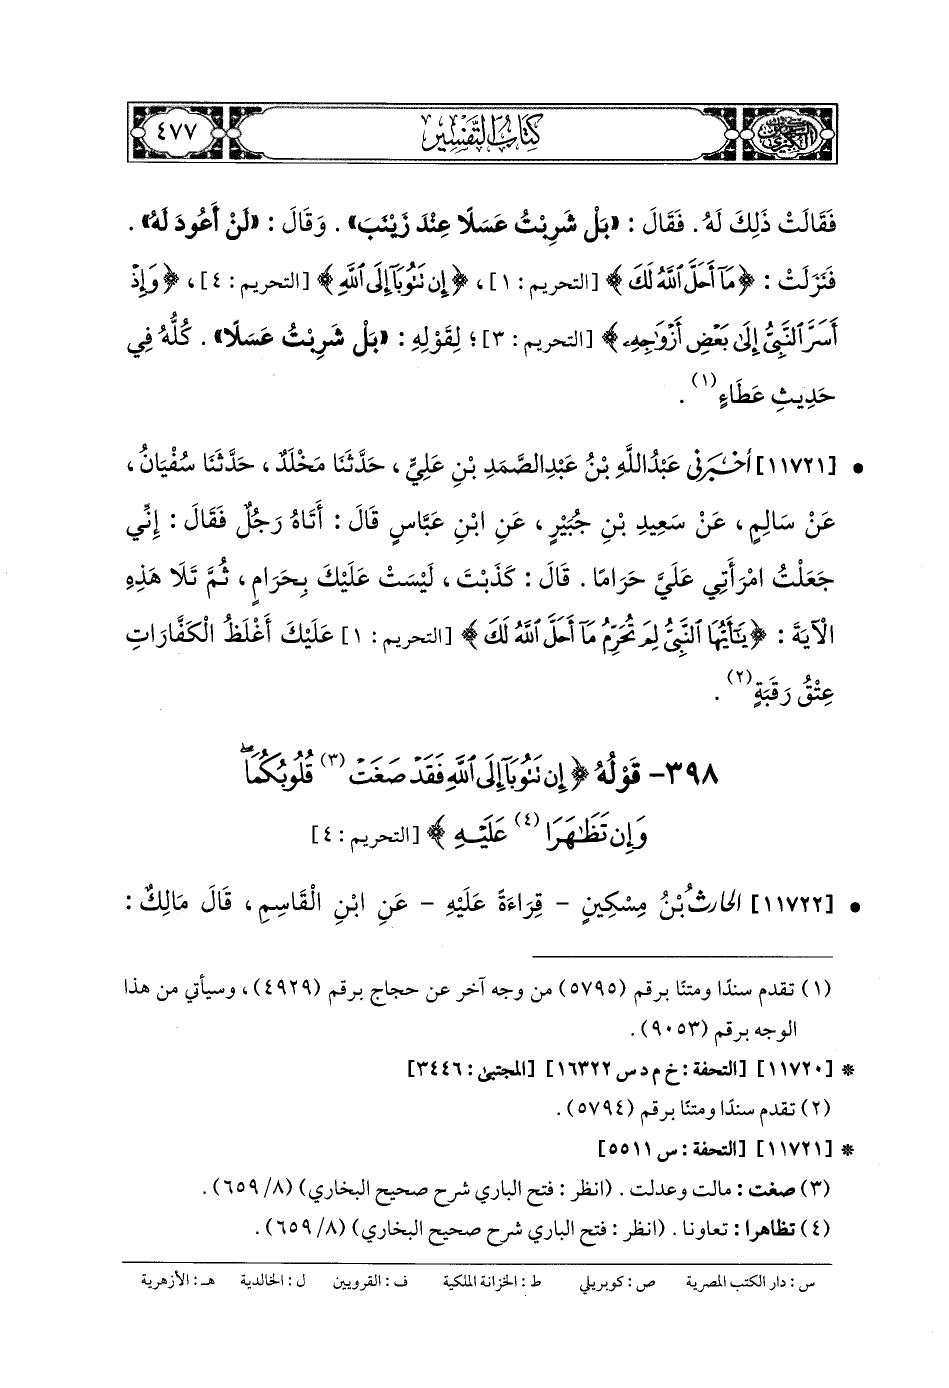 كتاب التفسير
٤٧٧
فَقَالَتْ ذَلِكَ لَهُ. فَقَالَ: «بَلْ شَرِبْتُ عَسَلًا عِنْدَ زَيْنَبَ». وَقَالَ: «لَنْ أَعُودَ لَهُ».
فَنَزَلَتْ: ﴿مَآ أَحَلَّ ٱللَّهُ لَكَ﴾ [التحريم: ١]، ﴿إِن تَتُوبَآ إِلَى ٱللَّهِ﴾ [التحريم: ٤]، ﴿وَإِذْ
أَسَرَّ ٱلنَّبِىُّ إِلَىٰ بَعْضِ أَزْوَٰجِهِۦ﴾ [التحريم: ٣]؛ لِقَوْلِهِ: «بَلْ شَرِبْتُ عَسَلًا». كُلُّهُ فِي
حَدِيثِ عَطَاءٍ(١).
• [١١٧٢١] أخبرني عَبْدُاللَّهِ بْنُ عَبْدِالصَّمَدِ بْنِ عَلِيٍّ، حَدَّثَنَا مَخْلَدٌ، حَدَّثَنَا سُفْيَانُ،
عَنْ سَالِمٍ، عَنْ سَعِيدِ بْنِ جُبَيْرٍ، عَنِ ابْنِ عَبَّاسٍ قَالَ: أَتَاهُ رَجُلٌ فَقَالَ: إِنِّي
جَعَلْتُ امْرَأَتِي عَلَيَّ حَرَامًا. قَالَ: كَذَبْتَ، لَيْسَتْ عَلَيْكَ بِحَرَامٍ، ثُمَّ تَلَا هَذِهِ
الْآيَةَ: ﴿يَـٰٓأَيُّهَا ٱلنَّبِىُّ لِمَ تُحَرِّمُ مَآ أَحَلَّ ٱللَّهُ لَكَ﴾ [التحريم: ١] عَلَيْكَ أَغْلَظُ الْكَفَّارَاتِ
عِتْقُ رَقَبَةٍ(٢).
٣٩٨- قَوْلُهُ ﴿إِن تَتُوبَآ إِلَى ٱللَّهِ فَقَدْ صَغَتْ(٣) قُلُوبُكُمَا ۖ
وَإِن تَظَـٰهَرَا(٤) عَلَيْهِ﴾ [التحريم: ٤]
• [١١٧٢٢] الحارثُ بْنُ مِسْكِينٍ - قِرَاءَةً عَلَيْهِ - عَنِ ابْنِ الْقَاسِمِ، قَالَ مَالِكٌ:
(١) تقدم سندًا ومتنًا برقم (٥٧٩٥) من وجه آخر عن حجاج برقم (٤٩٢٩)، وسيأتي من هذا
الوجه برقم (٩٠٥٣).
* [١١٧٢٠] [التحفة: خ م د س ١٦٣٢٢] [المجتبى: ٣٤٤٦]
(٢) تقدم سندًا ومتنًا برقم (٥٧٩٤).
* [١١٧٢١] [التحفة: س ٥٥١١]
(٣) صغت: مالت وعدلت. (انظر: فتح الباري شرح صحيح البخاري) (٨/ ٦٥٩).
(٤) تظاهرا: تعاونا. (انظر: فتح الباري شرح صحيح البخاري) (٨/ ٦٥٩).
س: دار الكتب المصرية ص: كوبريلي ط: الخزانة الملكية ف: القرويين ل: الخالدية هـ: الأزهرية